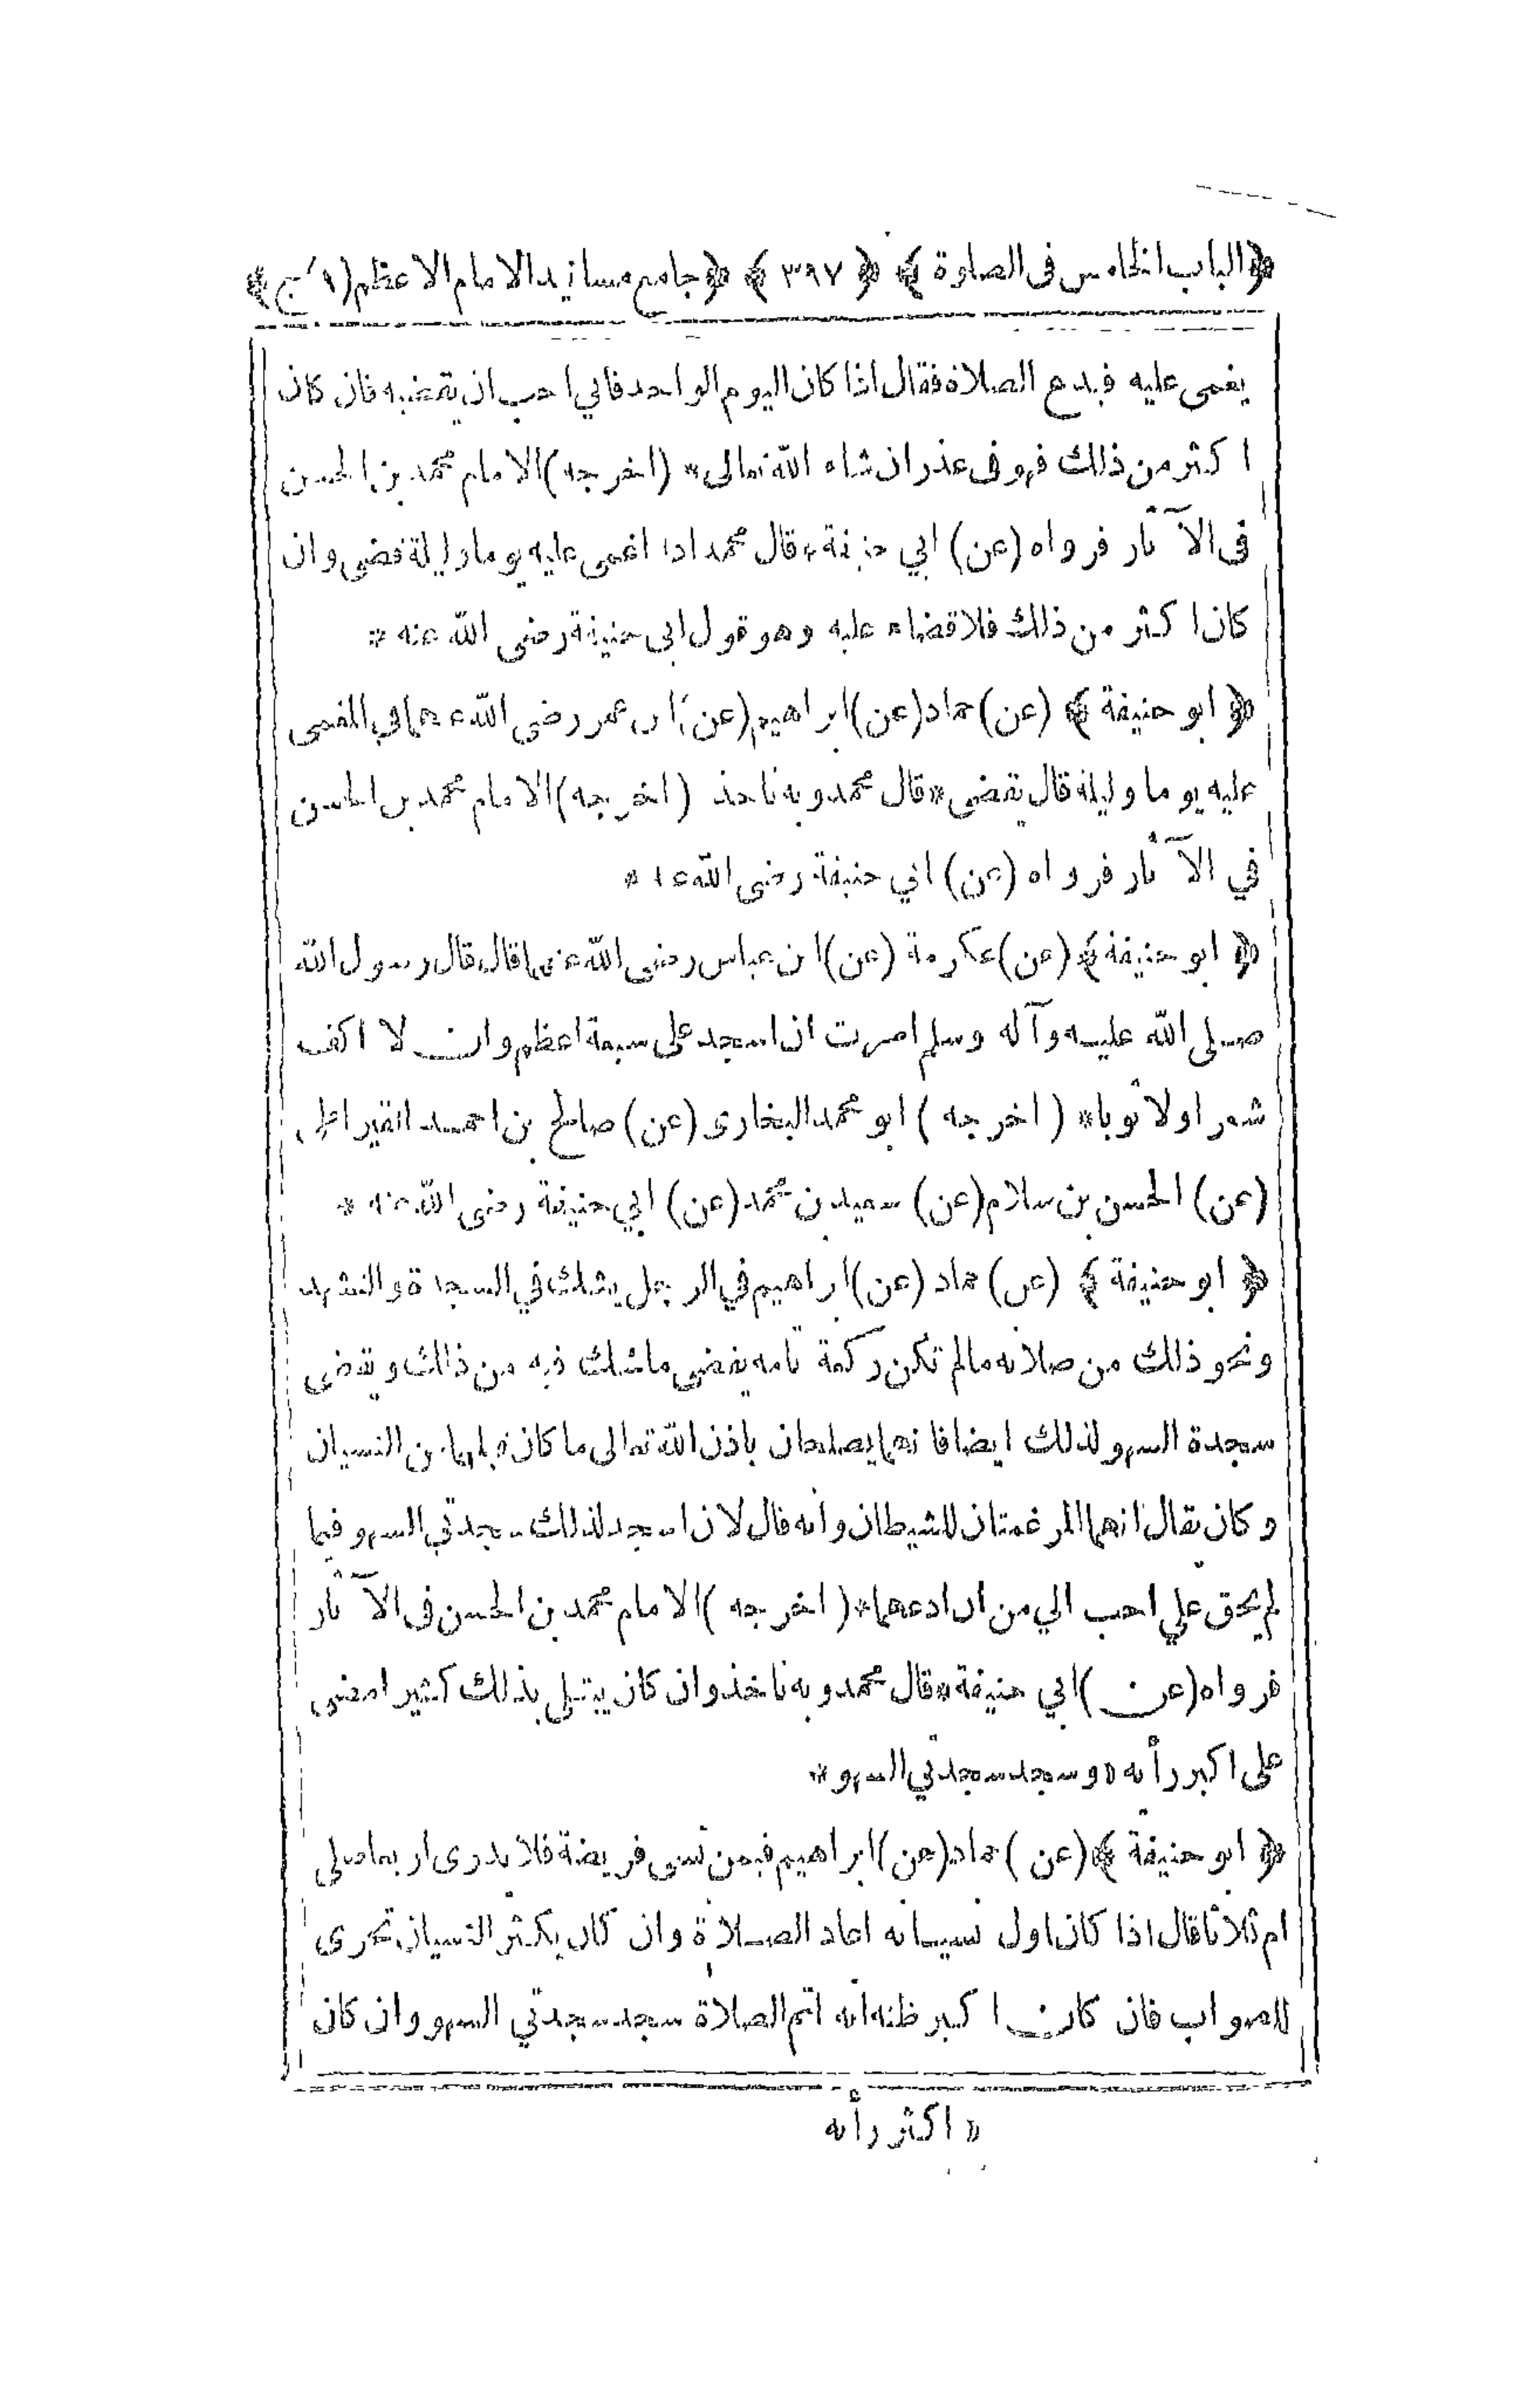 ﴿الباب الخامس فى الصلوة﴾ ﴿٣٩٧﴾ ﴿جامع مسانيد الامام الاعظم (١) ج﴾
يغمى عليه فيدع الصلاة فقال اذا كان اليوم الواحد فاني احب ان يقضيه فان كان
اكثر من ذلك فهو فى عذر ان شاء الله تعالى * (اخرجه) الامام محمد بن الحسن
فى الآثار فرواه (عن) ابي حنيفة * قال محمد اذا اغمى عليه يوما وليلة قضى وان
كان اكثر من ذلك فلا قضاء عليه وهو قول ابى حنيفة رضى الله عنه *
﴿ابو حنيفة﴾ (عن) حماد (عن) ابراهيم (عن) ابن عمر رضى الله عنهما في المغمى
عليه يوما وليلة قال يقضى * قال محمد وبه ناخذ (اخرجه) الامام محمد بن الحسن
في الآثار فرواه (عن) ابي حنيفة رضى الله عنه *
﴿ابو حنيفة﴾ (عن) عكرمة (عن) ابن عباس رضى الله عنهما قال قال رسول الله
صلى الله عليه وآله وسلم امرت ان اسجد على سبعة اعظم وان لا اكف
شعرا ولا ثوبا * (اخرجه) ابو محمد البخارى (عن) صالح بن احمد القيراطى
(عن) الحسن بن سلام (عن) سعيد بن محمد (عن) ابي حنيفة رضى الله عنه *
﴿ابو حنيفة﴾ (عن) حماد (عن) ابراهيم في الرجل يشك في السجدة والتشهد
ونحو ذلك من صلاته مالم تكن ركعة تامه يقضى ماشك فيه من ذلك ويقضى
سجدة السهو لذلك ايضا فانهما يصلحان باذن الله تعالى ما كان قبلهما من النسيان
وكان يقال انهما المرغمتان للشيطان وانه قال لان اسجد لذلك سجدتي السهو فيما
لم يحق علي احب الي من ان ادعهما * (اخرجه) الامام محمد بن الحسن فى الآثار
فرواه (عن) ابي حنيفة * قال محمد وبه ناخذ وان كان يبتلى بذلك كثيرا مضى
على اكبر رأيه * وسجد سجدتي السهو *
﴿ابو حنيفة﴾ (عن) حماد (عن) ابراهيم فيمن نسى فريضة فلا يدرى اربعا صلى
ام ثلاثا قال اذا كان اول نسيانه اعاد الصلاة وان كان يكثر النسيان تحرى
للصواب فان كان اكبر ظنه انه اتم الصلاة سجد سجدتي السهو وان كان
* اكثر رأيه